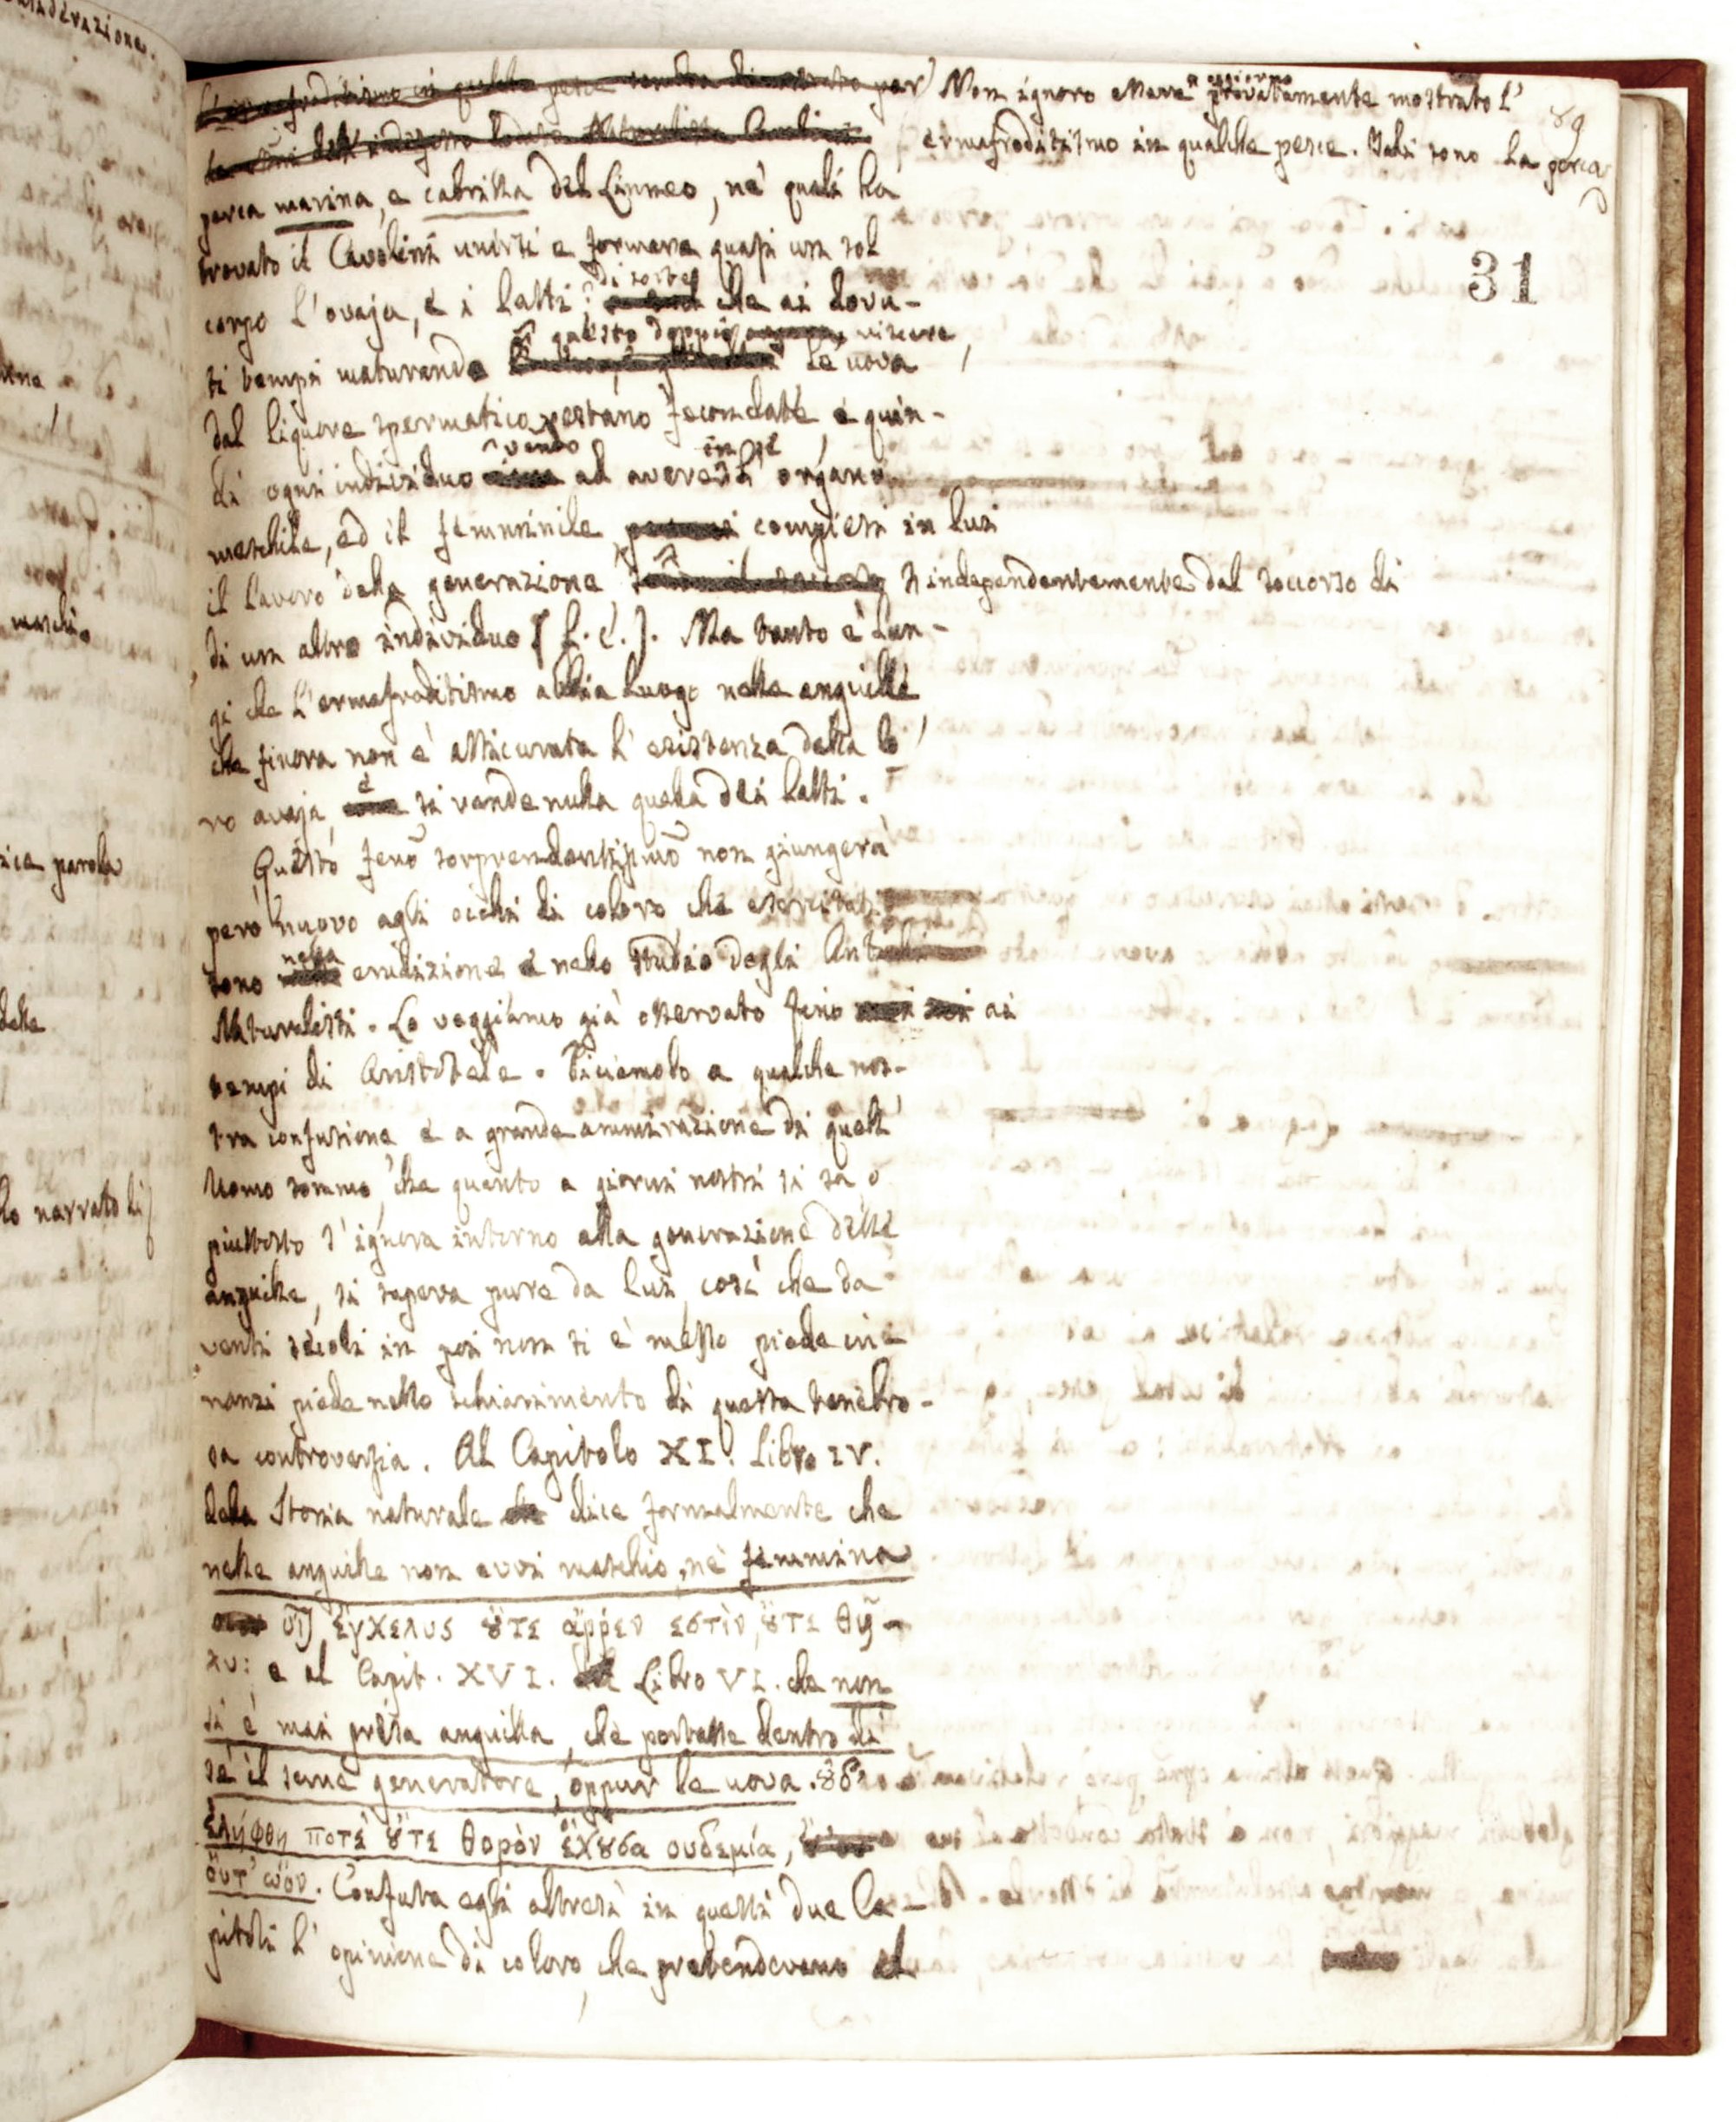 Non ignoro essere a' giorni provatamente mostrato l'
ermafroditismo in qualche pesce. Tali sono la perca
89
31
perca marina, e cabrilla del Linneo, ne' quali ha
trovato il Cavolini unirsi e formare quasi un sol
corpo l'ovaja, e i latti; di sorte che ai dovu-
ti tempi maturando in questo doppio viscere, le uova
dal liquore spermatico restano fecondate, e quin-
di ogni individuo venendo ad avere in se l' organo
maschile, ed il femminile compiesi in lui
il lavoro della generazione independentemente dal soccorso di
di un altro individuo (l. c.). Ma tanto è lun-
gi che l'ermafroditismo abbia luogo nelle anguille,
che finora non è assicurata l' esistenza della lo
ro ovaja, e si vende nulla quella dei latti.
Questo feno sorprendentissimo non giungerà
però nuovo agli occhi di coloro, che esercitati
sono nella erudizione e nello studio degli Antichi
Naturalisti. Lo veggiamo già osservato fino ai
tempi di Aristotele. Diciamolo a qualche nos-
tra confusione e a grande ammirazione di quell'
Uomo sommo, che quanto a giorni nostri si sa o
piuttosto s' ignora intorno alla generazione delle
anguille, si sapeva pure da lui, così che da
venti secoli in poi non si è messo piede in-
nanzi piede nello schiarimento di questa tenebro-
sa controversia. Al Capitolo XI. Libro IV.
della Storia naturale dice formalmente che
nelle anguille non avvi maschio, nè femmina
ἔγχελυς ȣ̓τε ἄῤῥεν ἐστὶν, ȣ̓τε θῆ-
λυ: e al Capit. XVI. Libro VI. che non
si è mai presa anguilla, che portasse dentro di
sè il seme generatore, oppur le uova.
ἐλήφθη ποτέ ȣ̓τε θορὸν ἔχȣσα ουδεμία,
ὄυτ' ὠὸν. Confuta egli altresì in questi due Ca-
pitoli l' opinione di coloro, che pretendevano